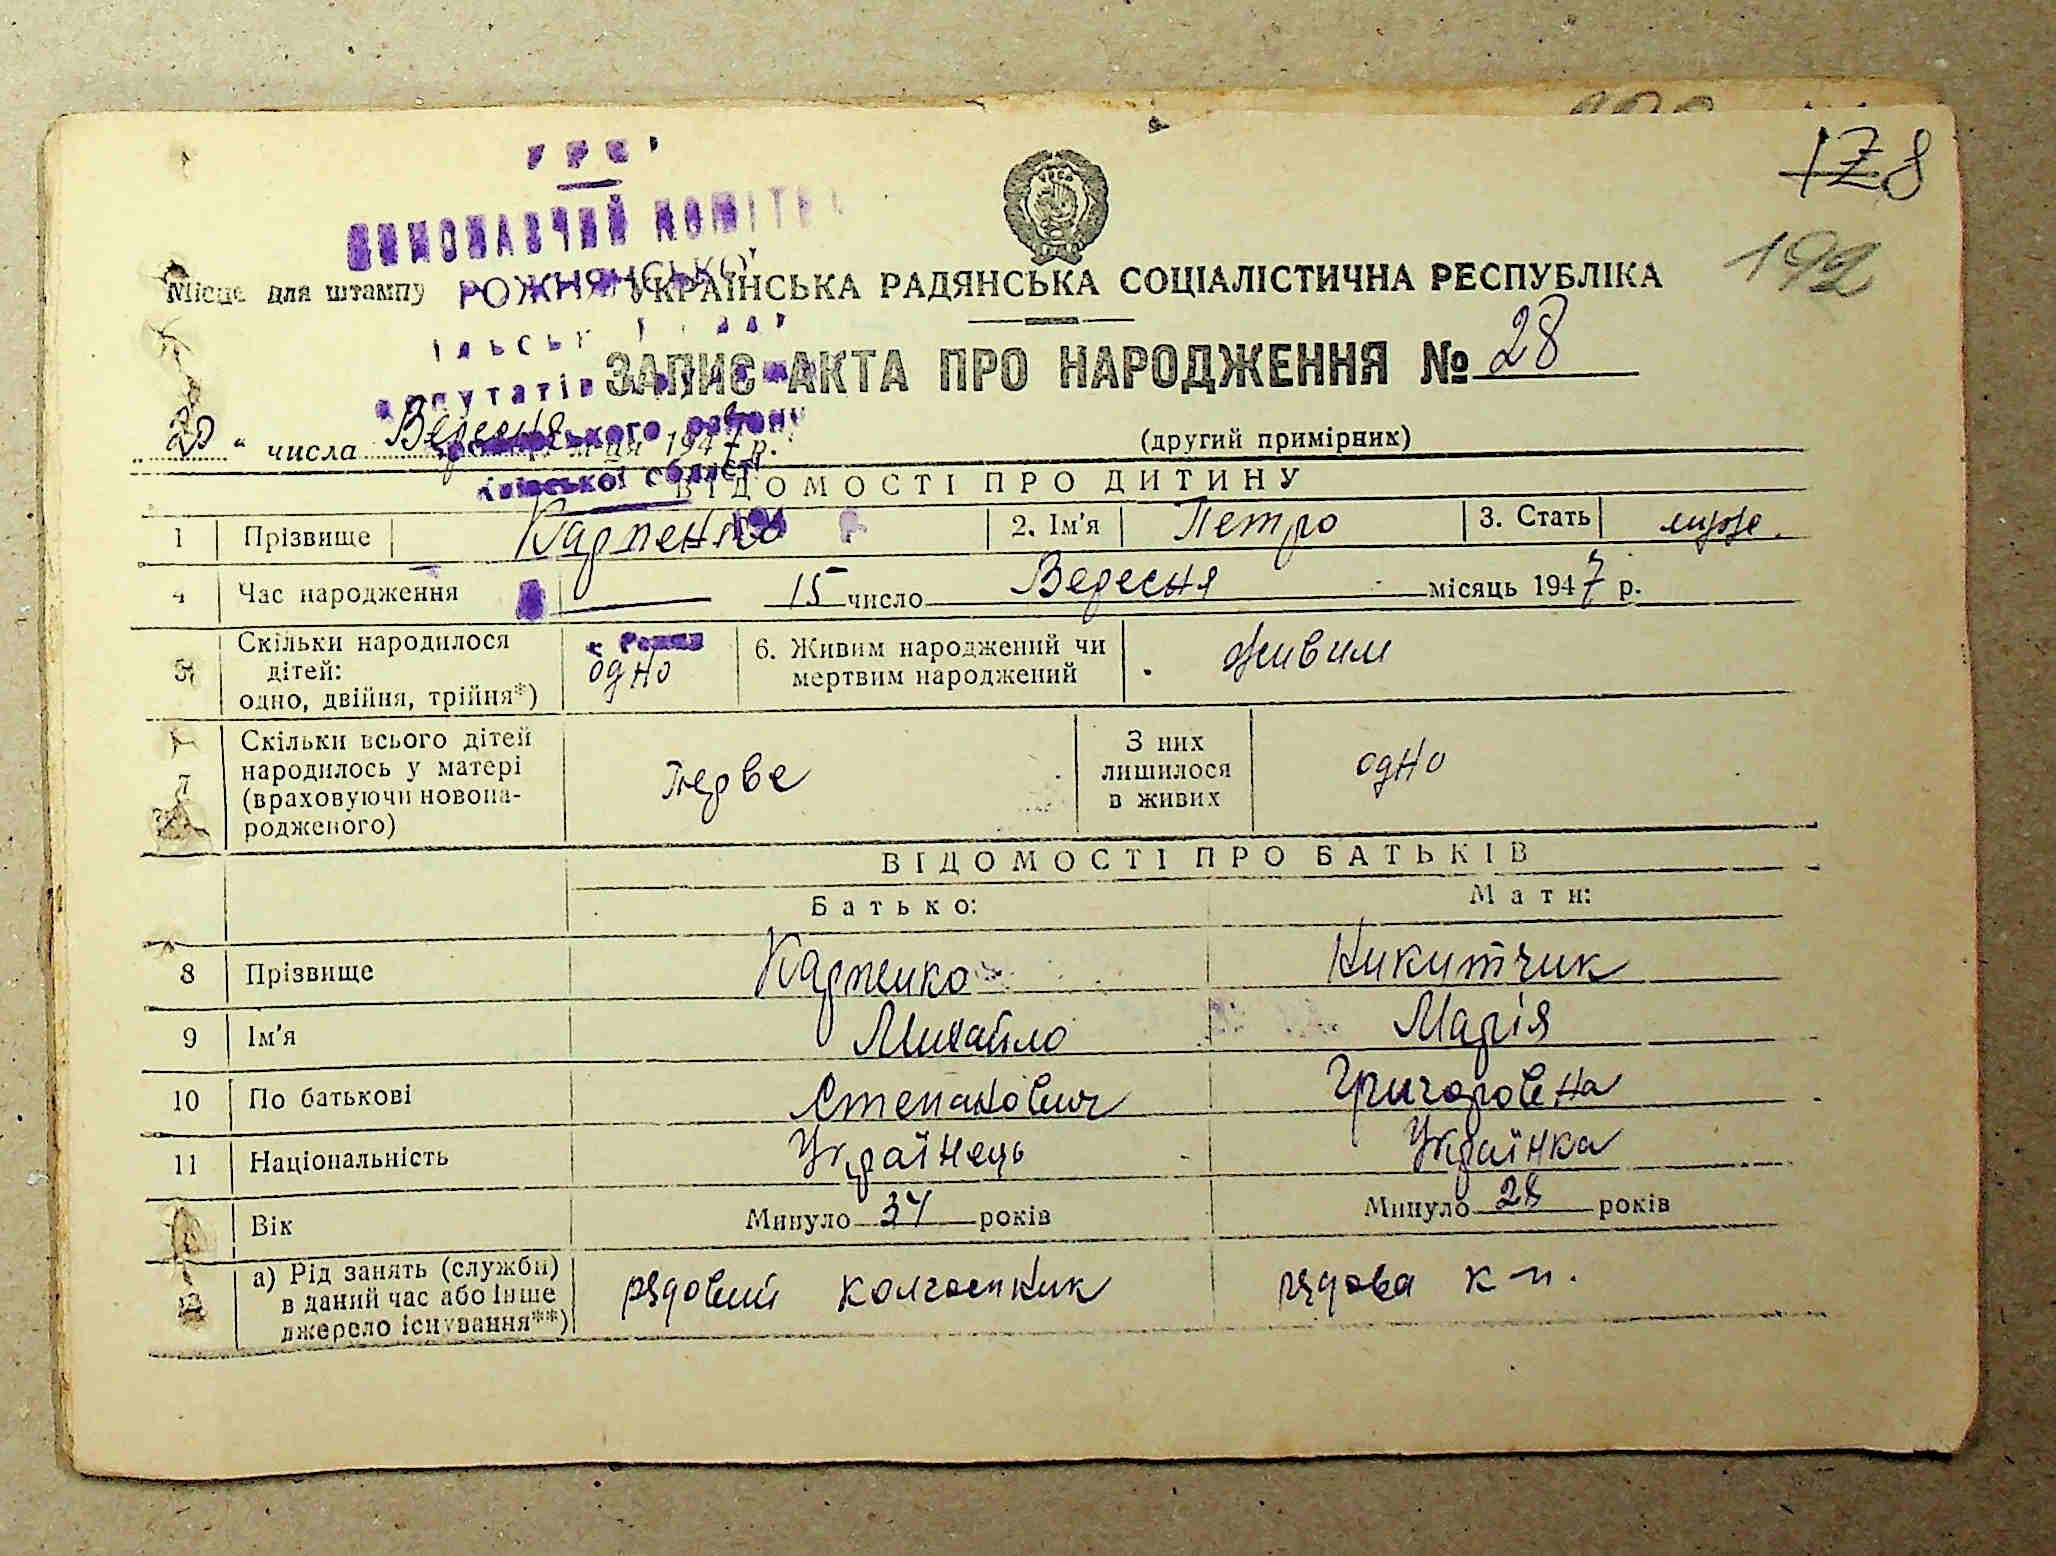 178
192
ВИКОНАВЧИЙ КОМІТЕ
Місце для штампу РОЖНЯНСЬКО УКРАЇНСЬКА РАДЯНСЬКА СОЦІАЛІСТИЧНА РЕСПУБЛІКА
ЗАПИС АКТА ПРО НАРОДЖЕННЯ № 28
„20“ числа Вересня м-ця 1947 р. (другий примірник)
ВІДОМОСТІ ПРО ДИТИНУ
1 Прізвище Карпенко 2. Ім'я Петро 3. Стать муже.
4 Час народження 15 число Вересня місяць 1947 р.
5 Скільки народилося дітей: одно, двійня, трійня*) одно 6. Живим народжений чи мертвим народжений живим
7 Скільки всього дітей народилось у матері (враховуючи новонародженого) перве З них лишилося в живих одно
ВІДОМОСТІ ПРО БАТЬКІВ
Батько: Мати:
8 Прізвище Карпенко Никитчик
9 Ім'я Михайло Марія
10 По батькові Степанович Григоровна
11 Національність Українець Українка
Вік Минуло 34 років Минуло 28 років
а) Рід занять (служби) в даний час або інше джерело існування**) рядовий колгоспник рядова к-п.